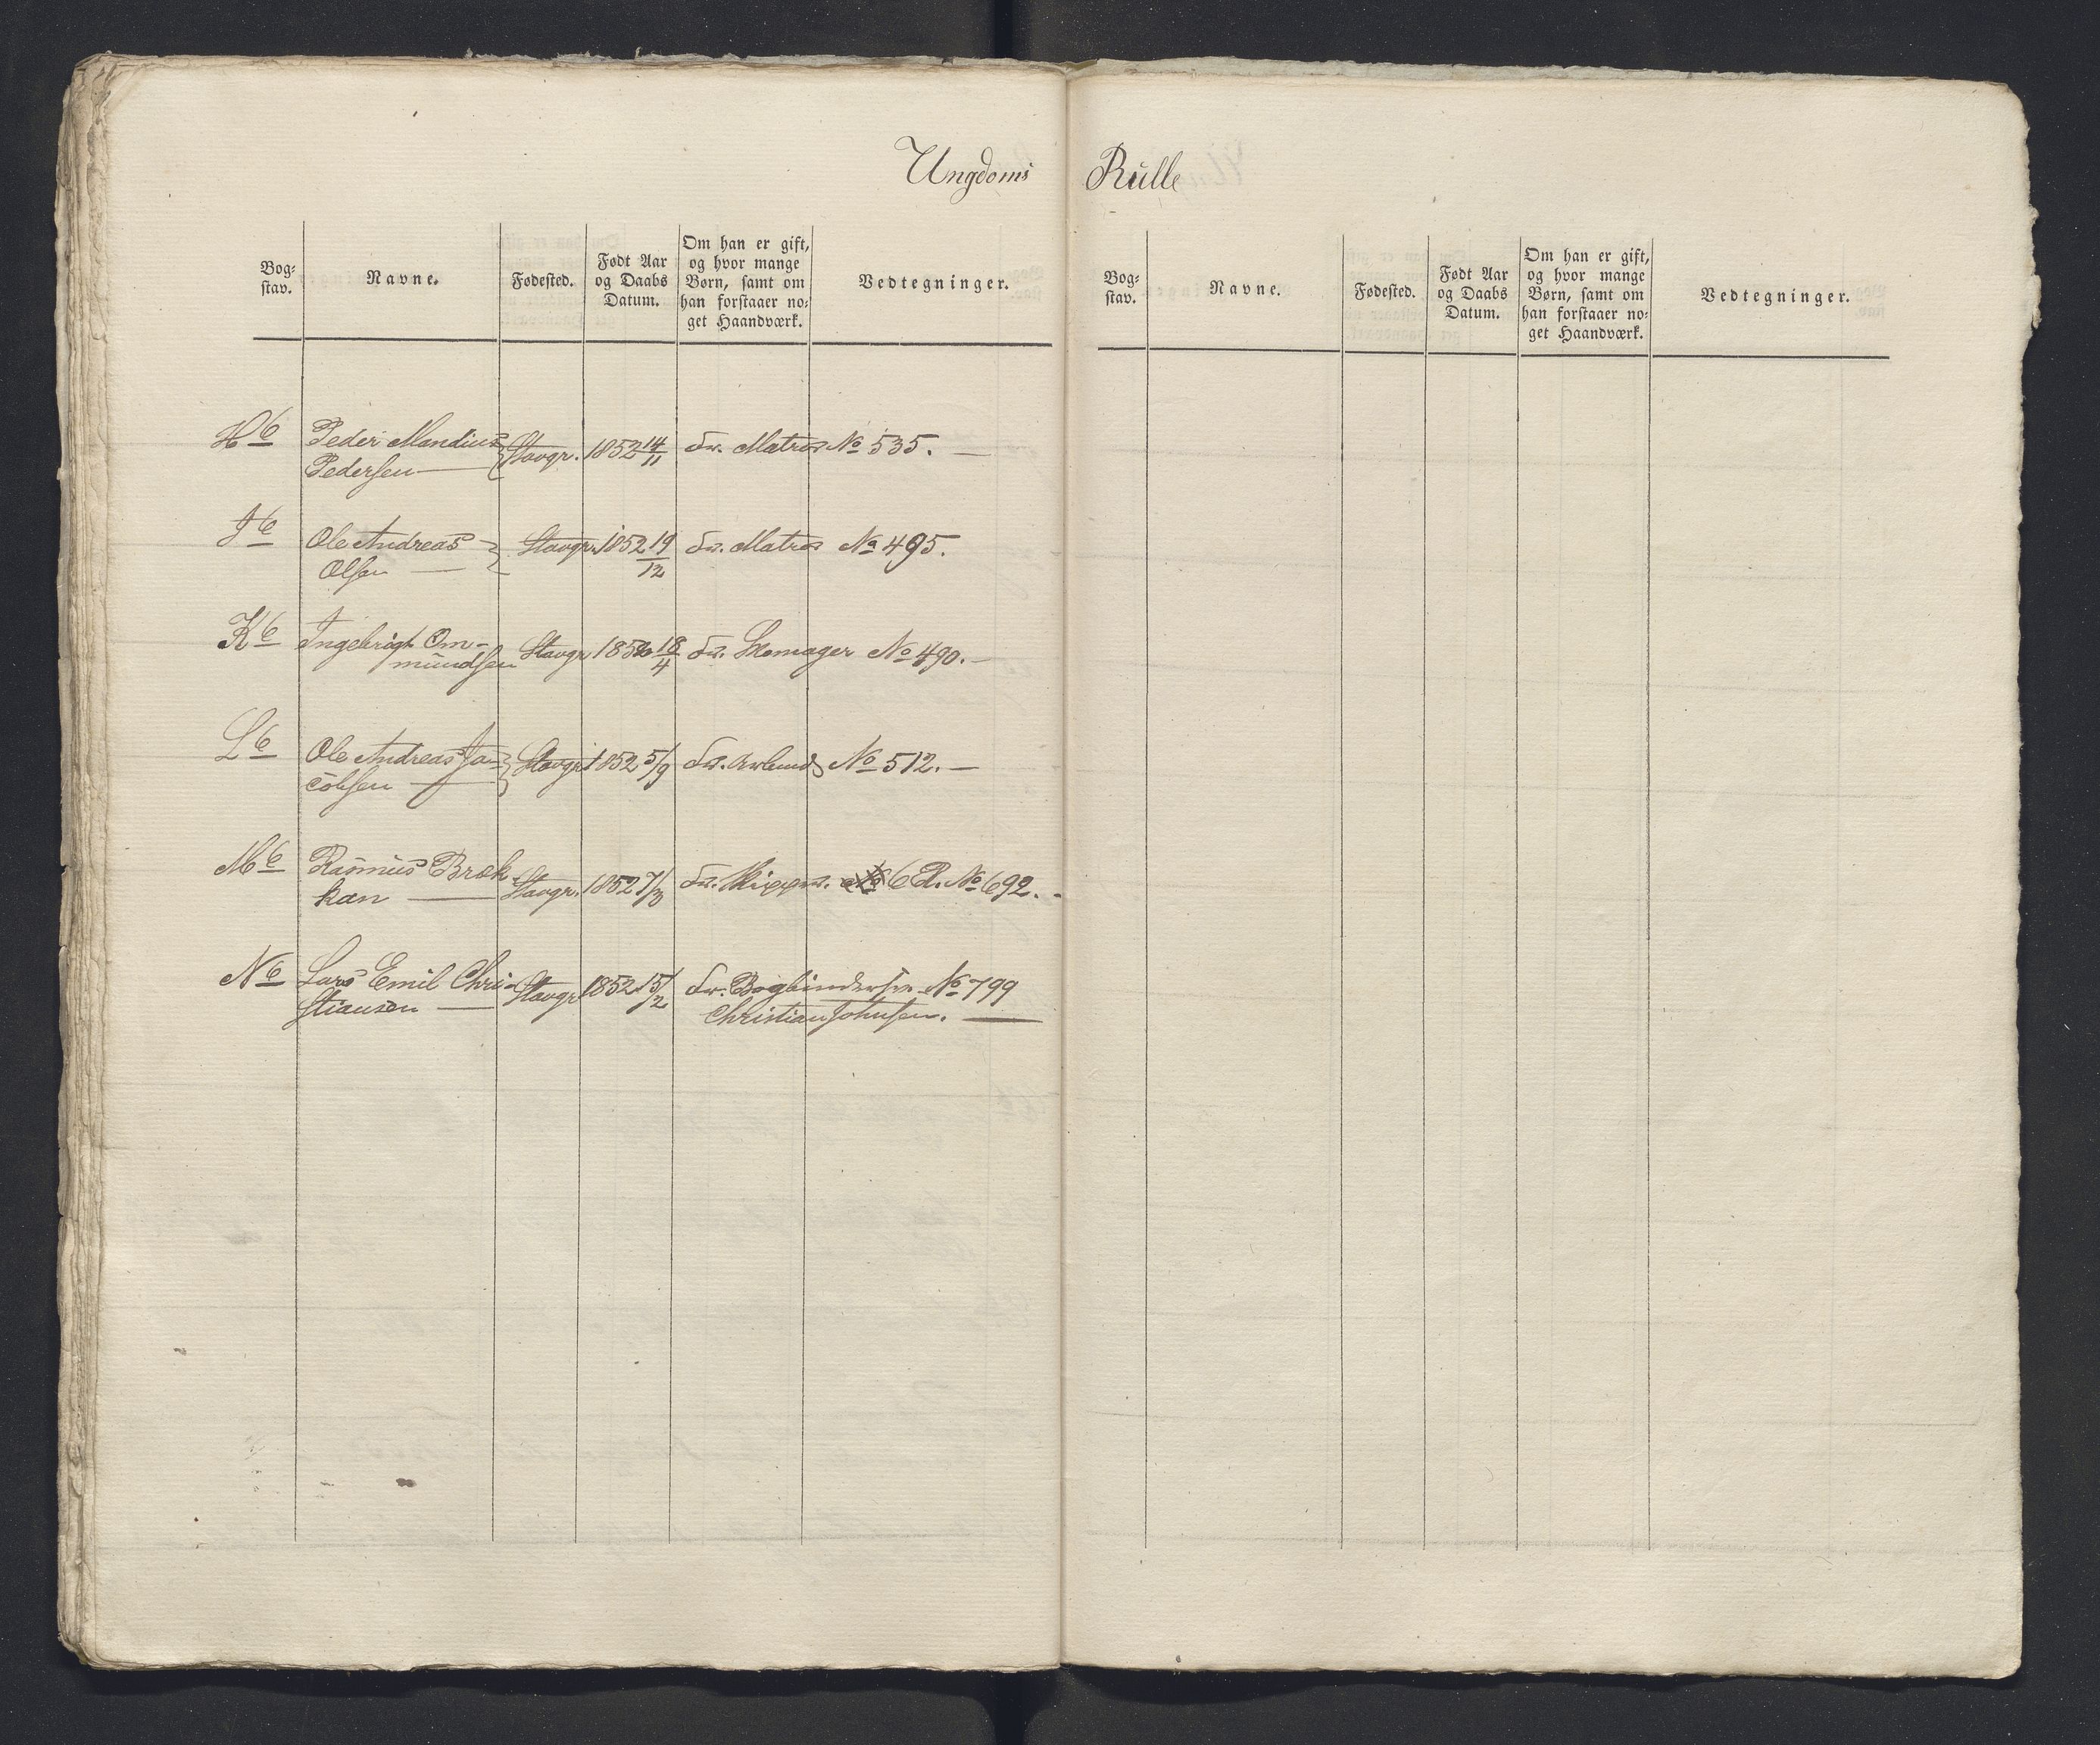 Ungdoms Rulle
Bog-
stav.
Navne.
Fødested.
Født Aar
og Daabs
Datum.
Om han er gift,
og hvor mange
Børn, samt om
han forstaaer no-
get Haandværk.
Vedtegninger.
H 6 Peder Mandius Stavgr. 1852 14/11 Fr. Matros No 535. —
Pedersen —
J 6 Ole Andreas Stavgr. 1852 19/12 Fr. Matros No 495.
Olsen —
K 6 Ingebrigt Om- Stavgr 1852 18/4 Fr. Skomager No 490. —
mundsen
L 6 Ole Andreas Ja- Stavgr 1852 5/9 Fr. Arbeids No 512. —
cobsen —
M 6 Rasmus Brek- Stavgr. 1852 7/3 Fr. No 6 R. No 692. -
kan —
N 6 Lars Emil Chri- Stavgr 1852 15/2 Fr. Bogbindersv. No 799
stiansen — Christian Johnsen. —
Bog-
stav.
Navne.
Fødested.
Født Aar
og Daabs
Datum.
Om han er gift,
og hvor mange
Børn, samt om
han forstaaer no-
get Haandværk.
Vedtegninger.